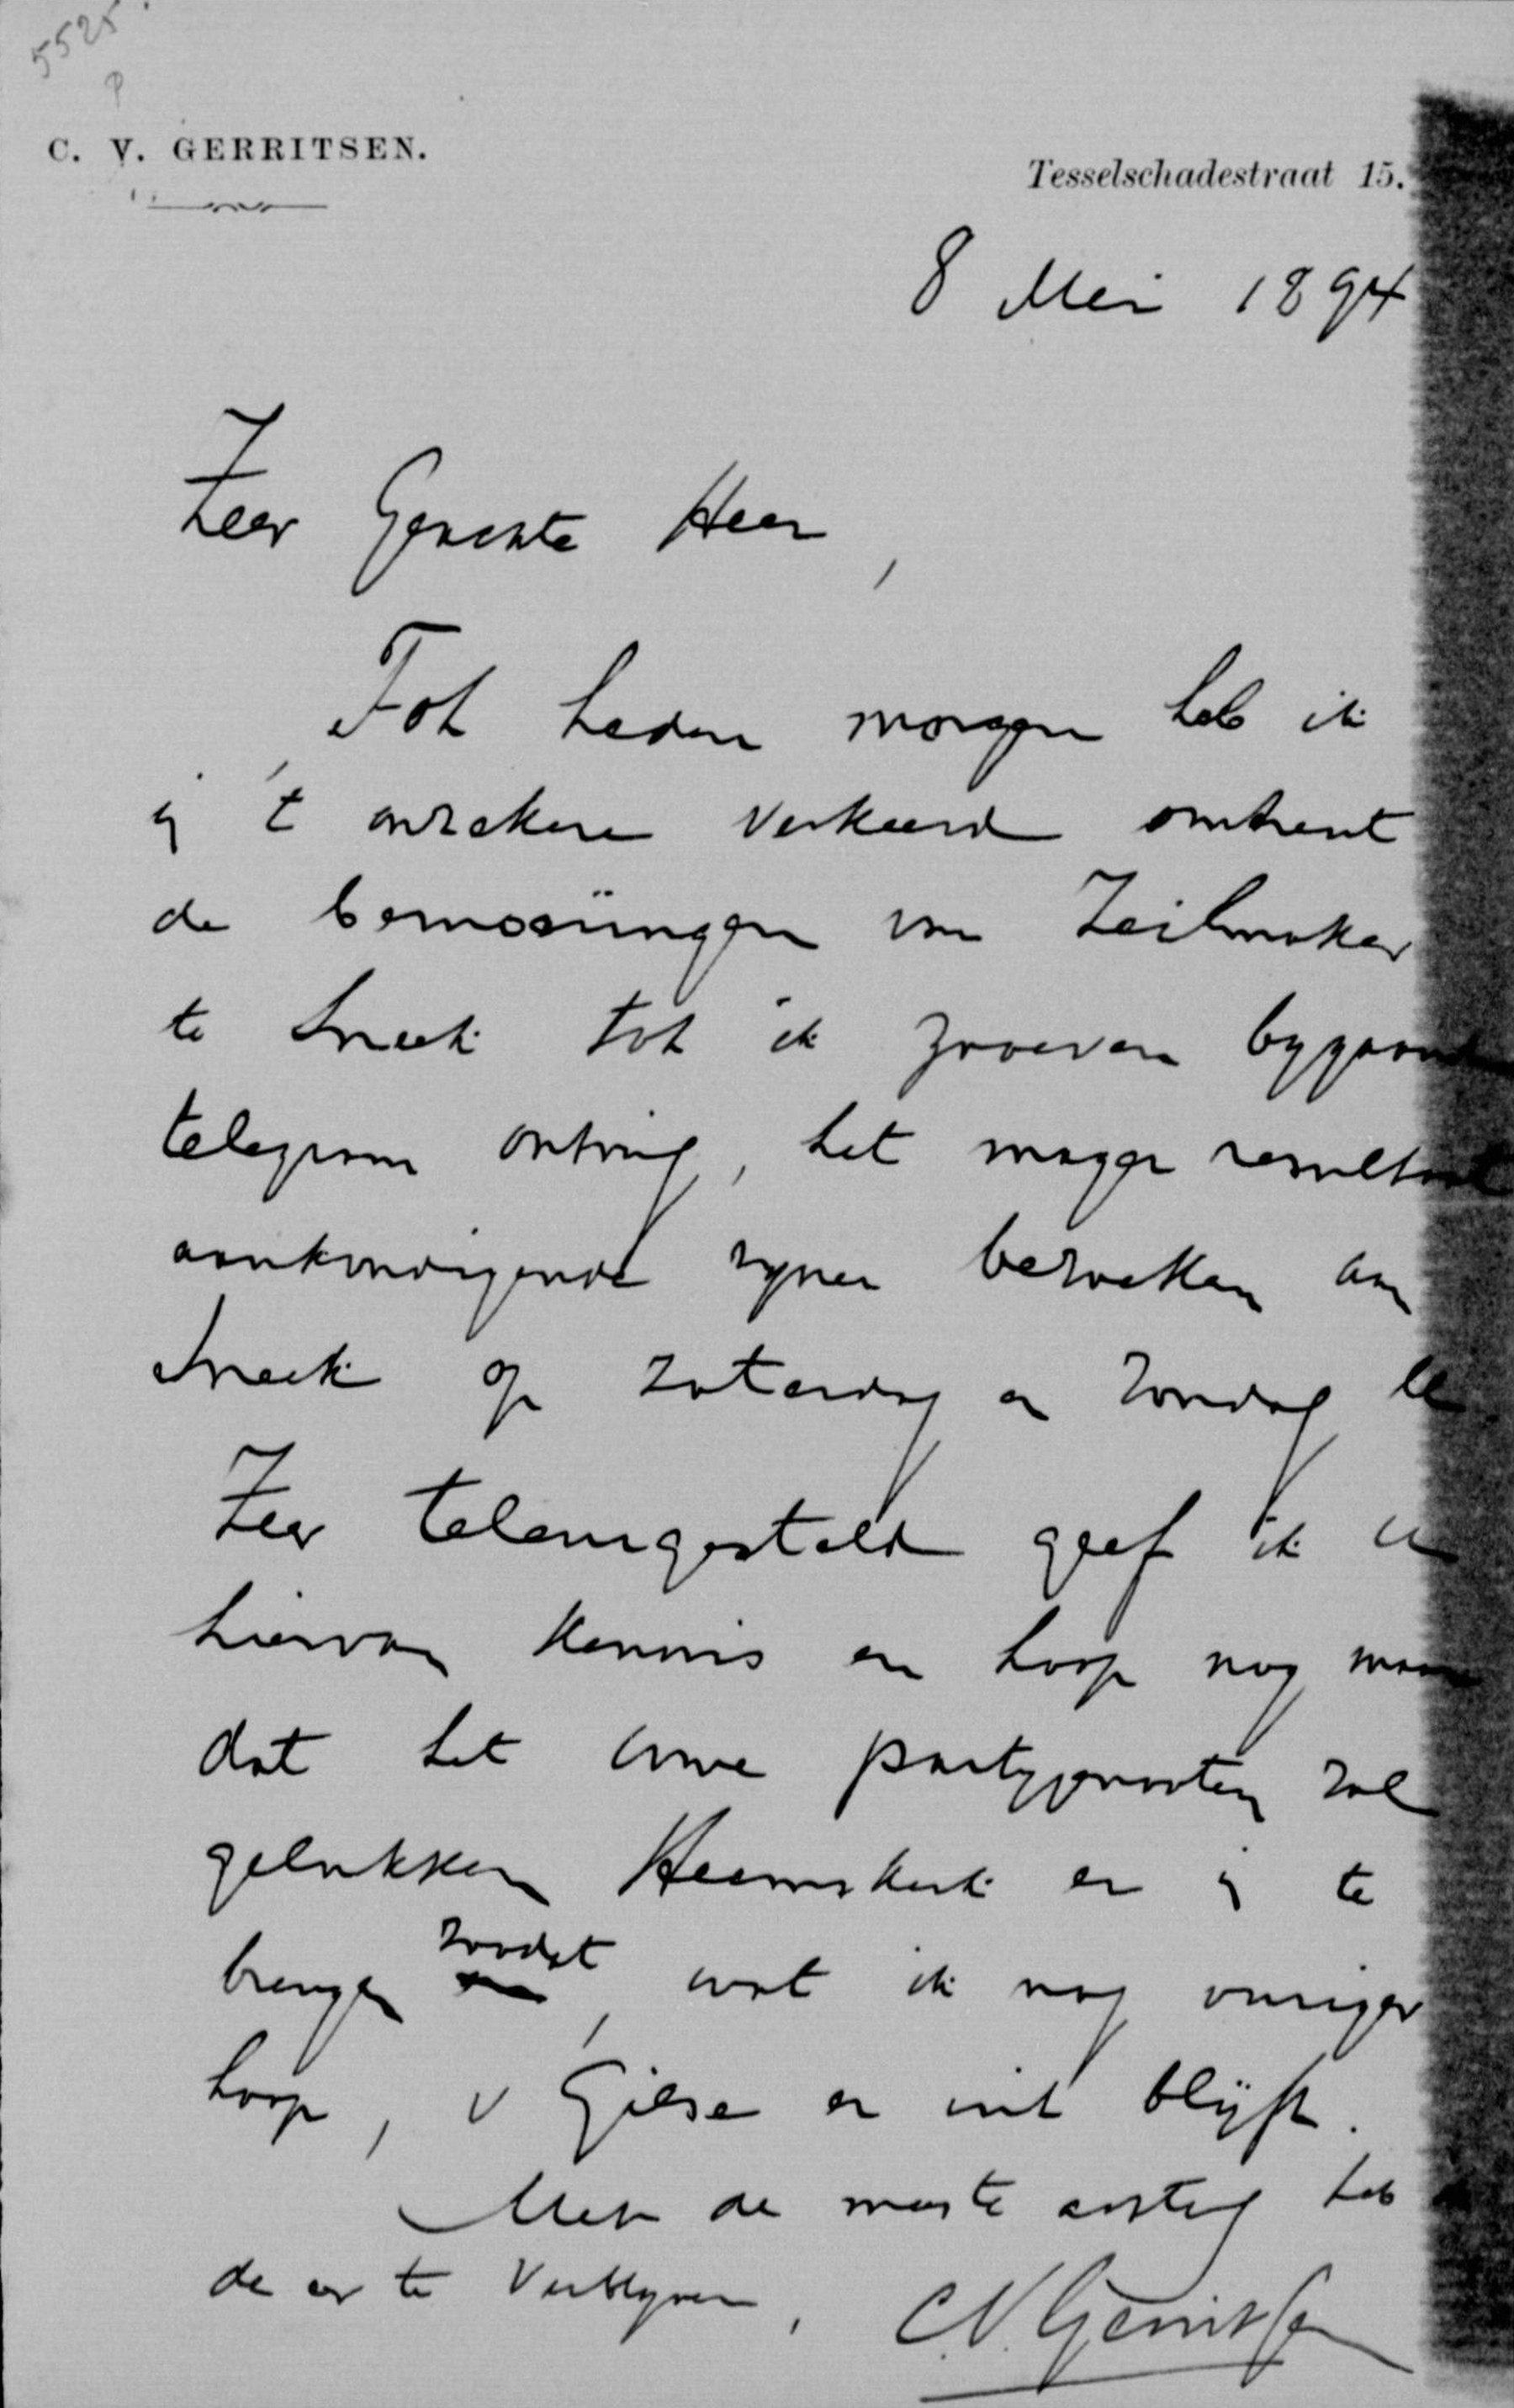 5525
P
C. V. GERRITSEN.
Tesselschadestraat 15.
8 Mei 1894
Zeer Geachte Heer,
Tot heden morgen heb ik
in 't onzekere verkeerd omtrent
de bemoeiingen van Zeilmaker
te Sneek tot ik zooeven bygaand
telegram ontving, het mager resultaat
aankondigende zyner bezoeken aan
Sneek op zaterdag en zondag ll
Zeer teleurgesteld geef ik u
hiervan kennis en hoop nog maar
dat het uwe partygenooten zal
gelukken Heemskerk er in te
brengen zoodat, wat ik nog vuriger
hoop, v Gilse er uit blijft.
Met de meeste achting heb
de eer te verblyven,
C.V. Gerritsen